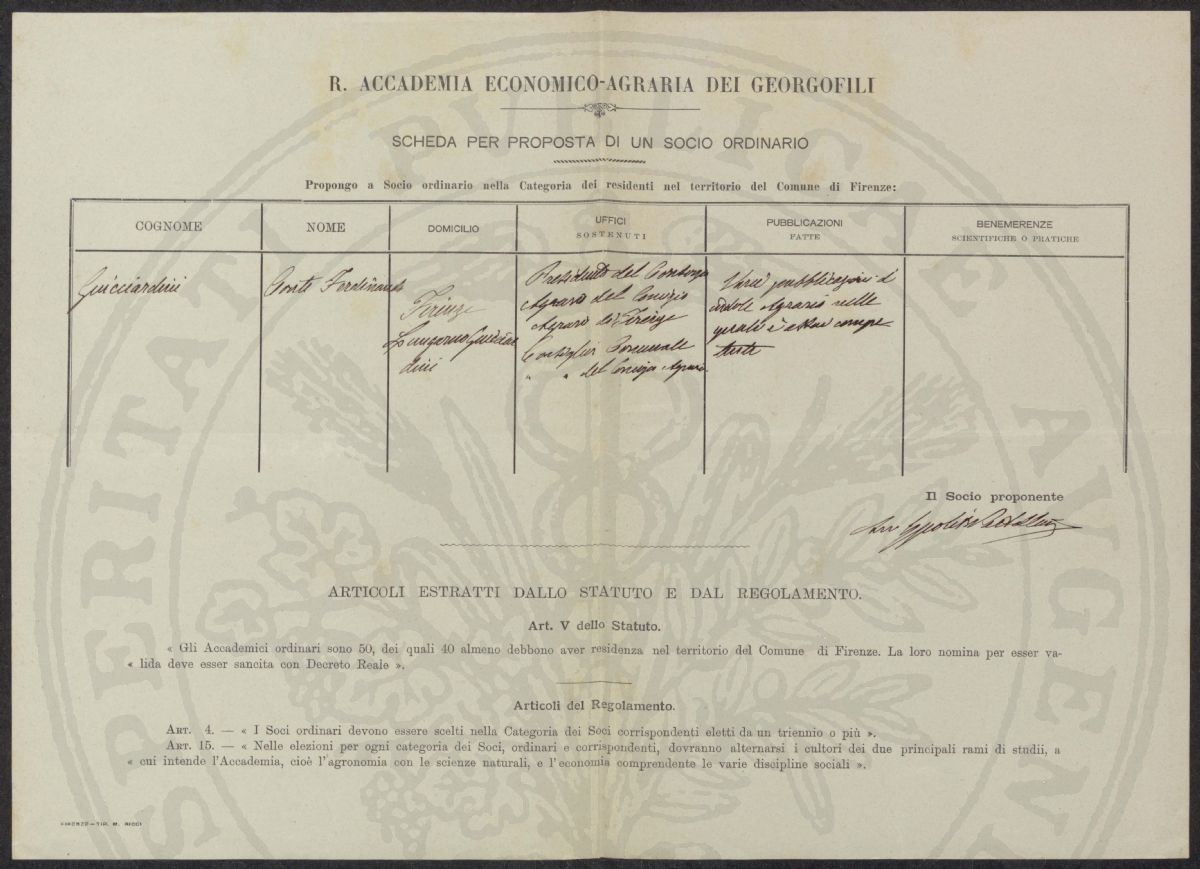 R. ACCADEMIA ECONOMICO-AGRARIA DEI GEORGOFILI
SCHEDA PER PROPOSTA DI UN SOCIO ORDINARIO
Propongo a Socio ordinario nella Categoria dei residenti nel territorio del Comune di Firenze:
COGNOME
NOME
DOMICILIO
UFFICI
SOSTENUTI
PUBBLICAZIONI
FATTE
BENEMERENZE
SCIENTIFICHE O PRATICHE
Guicciardini
Conte Ferdinando
Firenze
Lungarno Guicciar
dini
Presidente del Consorzio
Agrario del Comizio
Agrario di Firenze
Consigliere Comunale
" " del Comizio Agrario
Varie pubblicazioni d'
indole Agraria nelle
quali è assai compe
tente
Il Socio proponente
Ippolito
ARTICOLI ESTRATTI DALLO STATUTO E DAL REGOLAMENTO.
Art. V dello Statuto.
« Gli Accademici ordinari sono 50, dei quali 40 almeno debbono aver residenza nel territorio del Comune di Firenze. La loro nomina per esser va-
« lida deve esser sancita con Decreto Reale ».
Articoli del Regolamento.
ART. 4. — « I Soci ordinari devono essere scelti nella Categoria dei Soci corrispondenti eletti da un triennio o più ».
ART. 15. — « Nelle elezioni per ogni categoria dei Soci, ordinari e corrispondenti, dovranno alternarsi i cultori dei due principali rami di studii, a
« cui intende l'Accademia, cioè l'agronomia con le scienze naturali, e l'economia comprendente le varie discipline sociali ».
FIRENZE—TIP. M. RICCI
SPERITATI PUBLICAE AVGEN